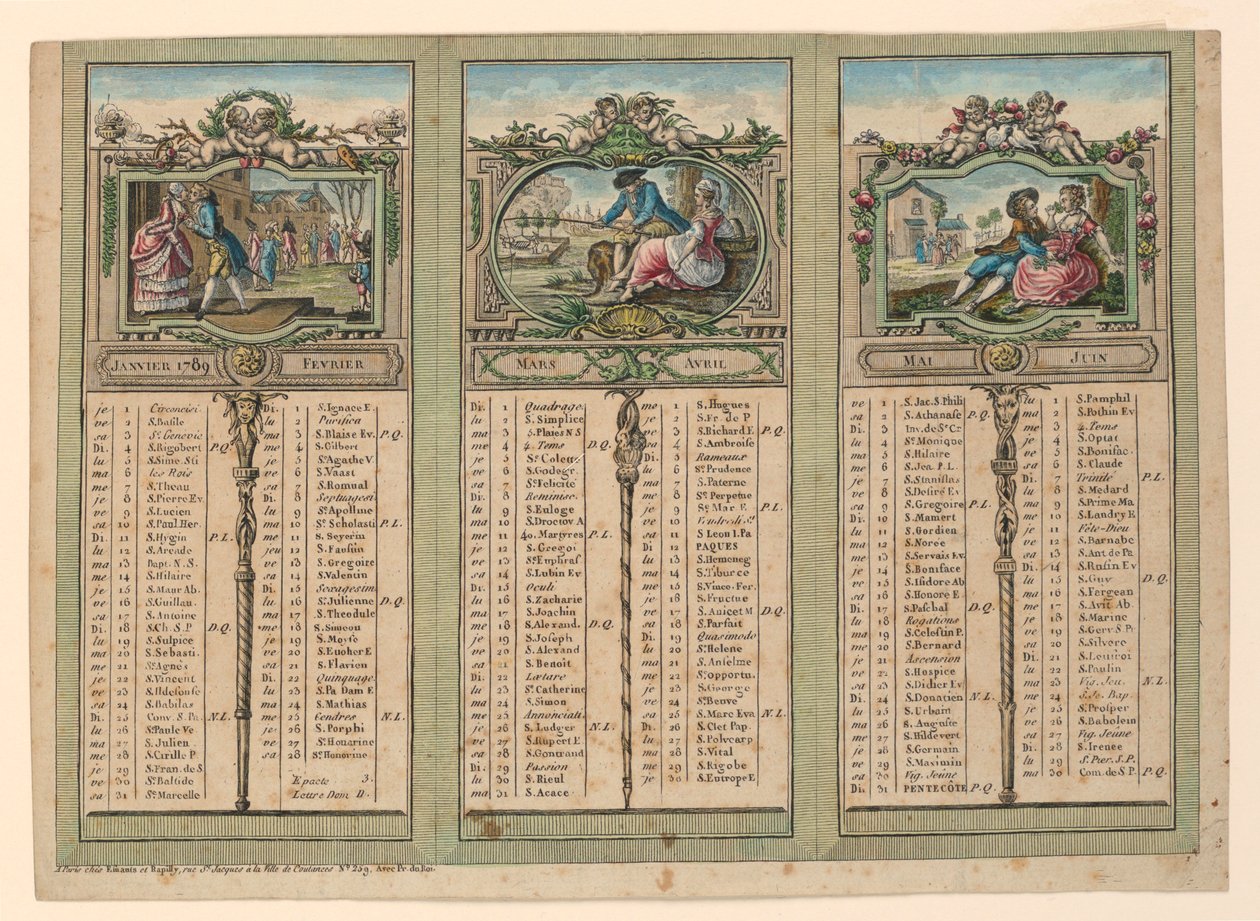 JANVIER 1789
je 1 Circoncisi.
ve 2 S. Basile
sa 3 Ste Genevie.
Di. 4 S. Rigobert P.Q.
lu 5 S. Sime. Sti
ma 6 les Rois
me 7 S. Theau
je 8 S. Pierre Ev.
ve 9 S. Lucien
sa 10 S. Paul. Her.
Di. 11 S. Hygin P.L.
lu 12 S. Arcade
ma 13 Bapt. N.S.
me 14 S. Hilaire
je 15 S. Maur Ab.
ve 16 S. Guillau.
sa 17 S. Antoine
Di. 18 S. Ch. S.P. D.Q.
lu 19 S. Sulpice
ma 20 S. Sebasti.
me 21 Ste Agnès
je 22 S. Vincent
ve 23 S. Ildefonse
sa 24 S. Babilas
Di. 25 Conv. S. Pa. N.L.
lu 26 Ste Paule Ve
ma 27 S. Julien
me 28 S. Cirille P.
je 29 S. Fran. de S.
ve 30 Ste Batilde
sa 31 Ste Marcelle
FEVRIER
Di. 1 S. Ignace E.
lu 2 Purifica
ma 3 S. Blaise Ev. P.Q.
me 4 S. Gilbert
je 5 Ste Agathe V
ve 6 S. Vaast
sa 7 S. Romual
Di. 8 Septuagesi
lu 9 Ste Apolline
ma 10 Ste Scholasti P.L.
me 11 S. Severin
jeu 12 S. Faustin
ve 13 S. Gregoire
sa 14 S. Valentin
Di. 15 Sexagesim
lu 16 Ste Julienne D.Q.
ma 17 S. Theodule
me 18 S. Simeon
je 19 S. Moyse
ve 20 S. Eucher E
sa 21 S. Flavien
Di. 22 Quinquage.
lu 23 S. Pa Dam E
ma 24 S. Mathias
me 25 Cendres N.L.
je 26 S. Porphi
ve 27 Ste Honarine
sa 28 Ste Honorine
Epacte 3.
Lettre Dom D.
MARS
Di. 1 Quadrage.
lu 2 S. Simplice
ma 3 5. Plaies N S
me 4 4. Tems D.Q.
je 5 Ste Colett
ve 6 S. Godegr.
sa 7 Ste Felicité
Di. 8 Reminisc.
lu 9 S. Euloge
ma 10 S. Droctov A
me 11 40. Martyres P.L.
je 12 S. Gregoi
ve 13 Ste Euphras
sa 14 S. Lubin Ev
Di. 15 Oculi
lu 16 S. Zacharie
ma 17 S. Joachin
me 18 S. Alexand. D.Q.
je 19 S. Joseph
ve 20 S. Alexand
sa 21 S. Benoît
Di. 22 Lætare
lu 23 Ste Catherine
ma 24 S. Simon
me 25 Annonciati.
je 26 S. Ludger N.L.
ve 27 S. Rupert E
sa 28 S. Gontrand
Di. 29 Passion
lu 30 S. Rieul
ma 31 S. Acace
AVRIL
me 1 S. Hugues
je 2 S. Fr. de P
ve 3 S. Richard E P.Q.
sa 4 S. Ambroise
Di. 5 Rameaux
lu 6 Ste Prudence
ma 7 S. Paterne
me 8 Ste Perpetue
je 9 Ste Mar. E P.L.
ve 10 Vendredi St
sa 11 S Leon I. Pa
Di 12 PAQUES
lu 13 S. Hemeneg
ma 14 S. Tiburce
me 15 S. Vince. Fer.
je 16 S. Fructue
ve 17 S. Anicet M D.Q.
sa 18 S. Parfait
Di. 19 Quasimodo
lu 20 Ste Helene
ma 21 S. Anselme
me 22 Ste opportu.
je 23 S. George
ve 24 Ste Beuve
sa 25 S. Marc Eva N.L.
Di. 26 S. Clet Pap.
lu 27 S. Polycarp
ma 28 S. Vital
me 29 S. Rigobe
je 30 S. Eutrope E
MAI
ve 1 S. Jac. S. Phili
sa 2 S. Athanase P.Q.
Di. 3 Inv. de Ste Cr
lu 4 Ste Monique
ma 5 S. Hilaire
me 6 S. Jea. P.L.
je 7 S. Stanislas
ve 8 S. Desiré Ev
sa 9 S. Gregoire P.L.
Di. 10 S. Mamert
lu 11 S. Gordien
ma 12 S. Norée
me 13 S. Servais Ev.
je 14 S. Boniface
ve 15 S. Isidore Ab
sa 16 S. Honoré E.
Di. 17 S. Paschal D.Q.
lu 18 Rogations
ma 19 S. Celestin P.
me 20 S. Bernard
je 21 Ascension
ve 22 S. Hospice
sa 23 S. Didier Ev
Di. 24 S. Donatien N.L.
lu 25 S. Urbain
ma 26 S. Auguste
me 27 S. Hildevert
je 28 S. Germain
ve 29 S. Maximin
sa 30 Vig. Jeune
Di. 31 PENTECÔTE P.Q.
JUIN
lu 1 S. Pamphil
ma 2 S. Pothin Ev
me 3 4. Tems
je 4 S. Optat
ve 5 S. Bonifac.
sa 6 S. Claude
Di. 7 Trinité P.L.
lu 8 S. Medard
ma 9 S. Prime Ma
me 10 S. Landry E
je 11 Fête-Dieu
ve 12 S. Barnabe
sa 13 S. Ant. de Pa
Di. 14 S. Rufin Ev
lu 15 S. Guy D.Q.
ma 16 S. Fergean
me 17 S. Avit Ab.
je 18 S. Marine
ve 19 S. Gerv. S Pr
sa 20 S. Silvere
Di. 21 S. Leufroi
lu 22 S. Paulin
ma 23 Vig. Jeu. N.L.
me 24 S. Je. Bap.
je 25 S. Prosper
ve 26 S. Babolein
sa 27 Vig. Jeune
Di. 28 S. Irenée
lu 29 S. Pier. S.P.
ma 30 Com. de S P. P.Q.
A Paris chés Esnauts et Rapilly, rue St Jacques à la Ville de Coutances No 259, Avec Pr. du Roi.